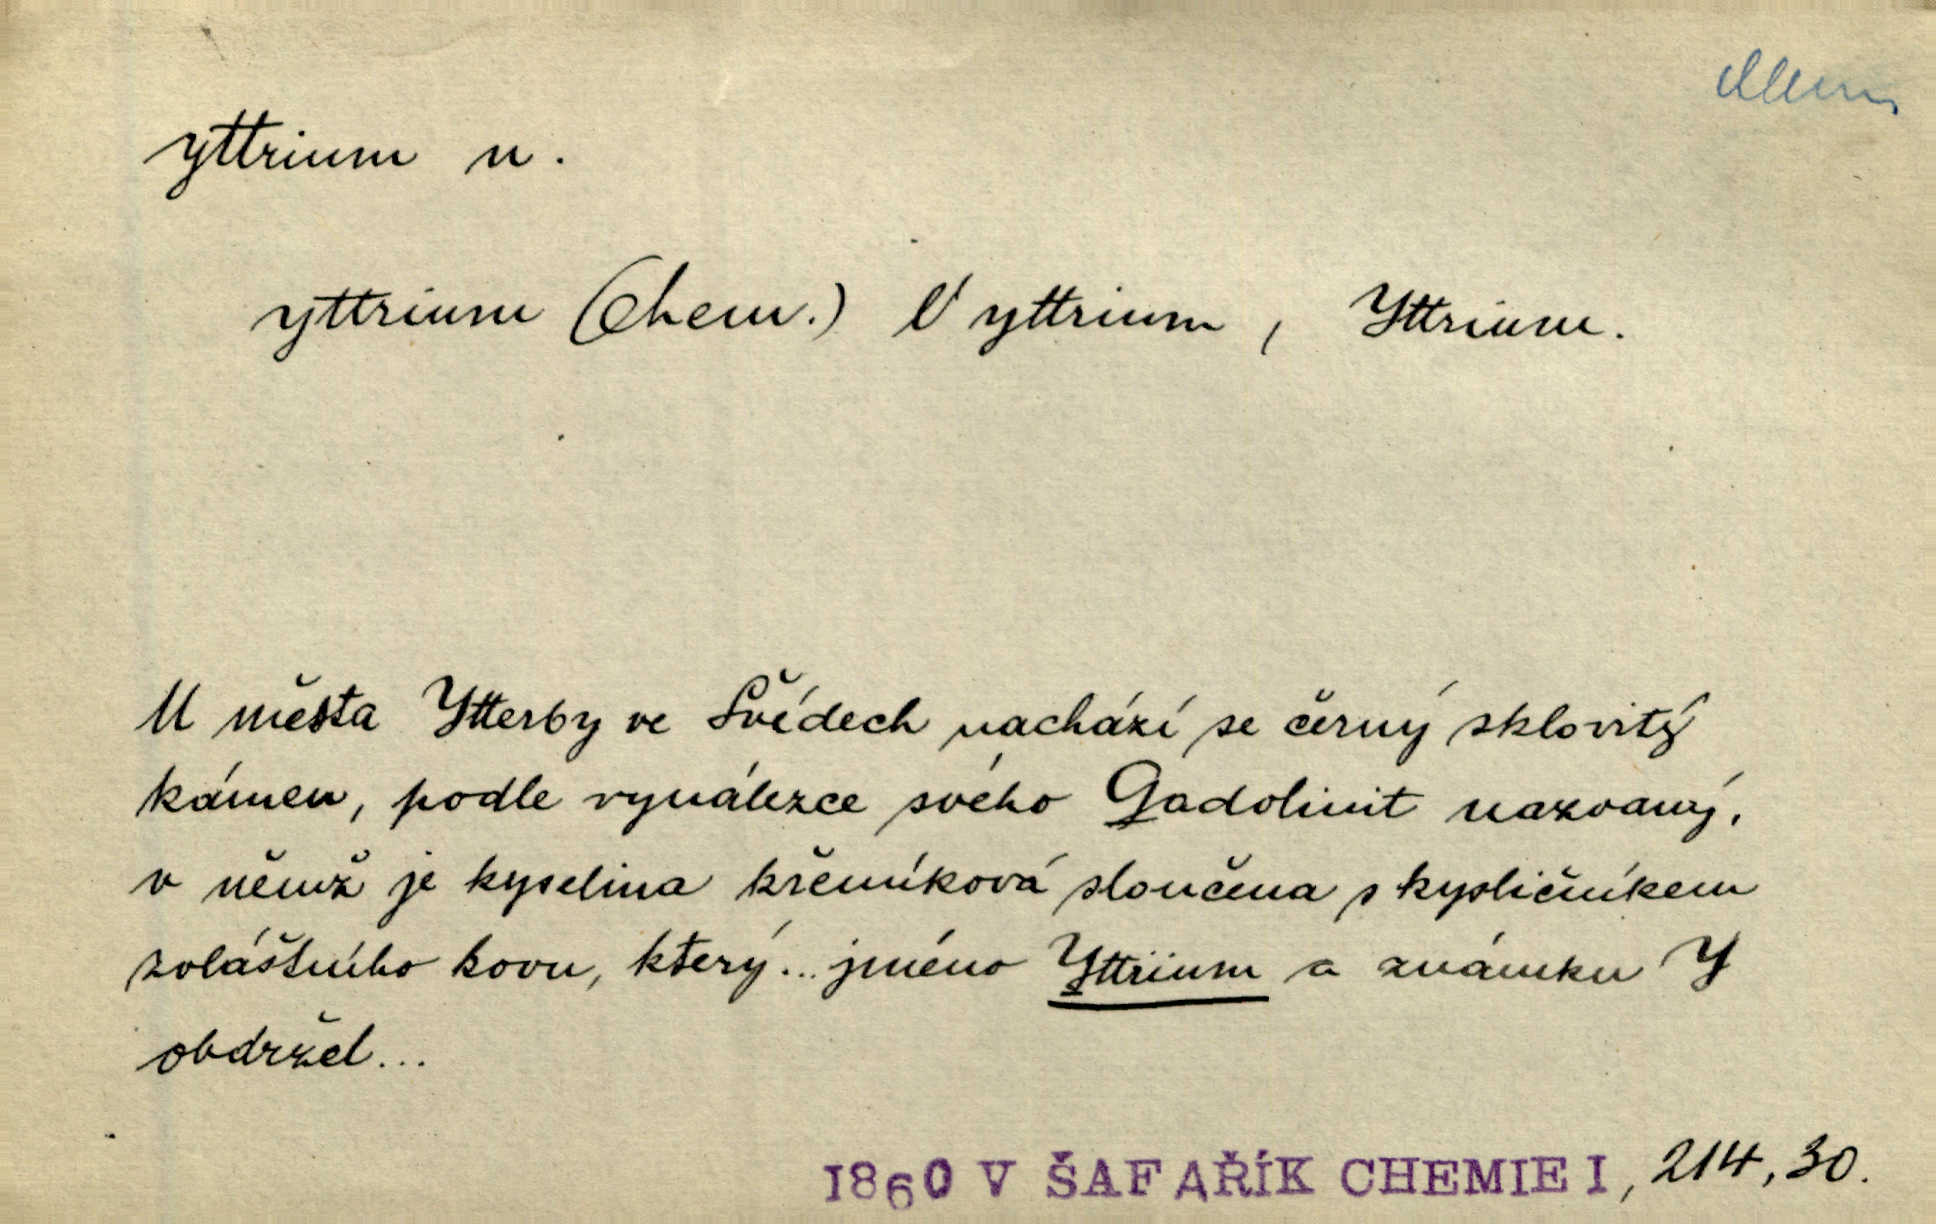 yttrium n.
yttrium (Chem.) V yttrium, Yttrium.
U města Ytterby ve Švédech nachází se černý sklovitý
kámen, podle vynálezce svého Gadolinit nazvaný,
v němž je kyselina křemíková sloučena s kysličníkem
zvláštního kovu, který... jméno Yttrium a známku Y
obdržel...
1860 V ŠAFAŘÍK CHEMIE I, 214, 30.